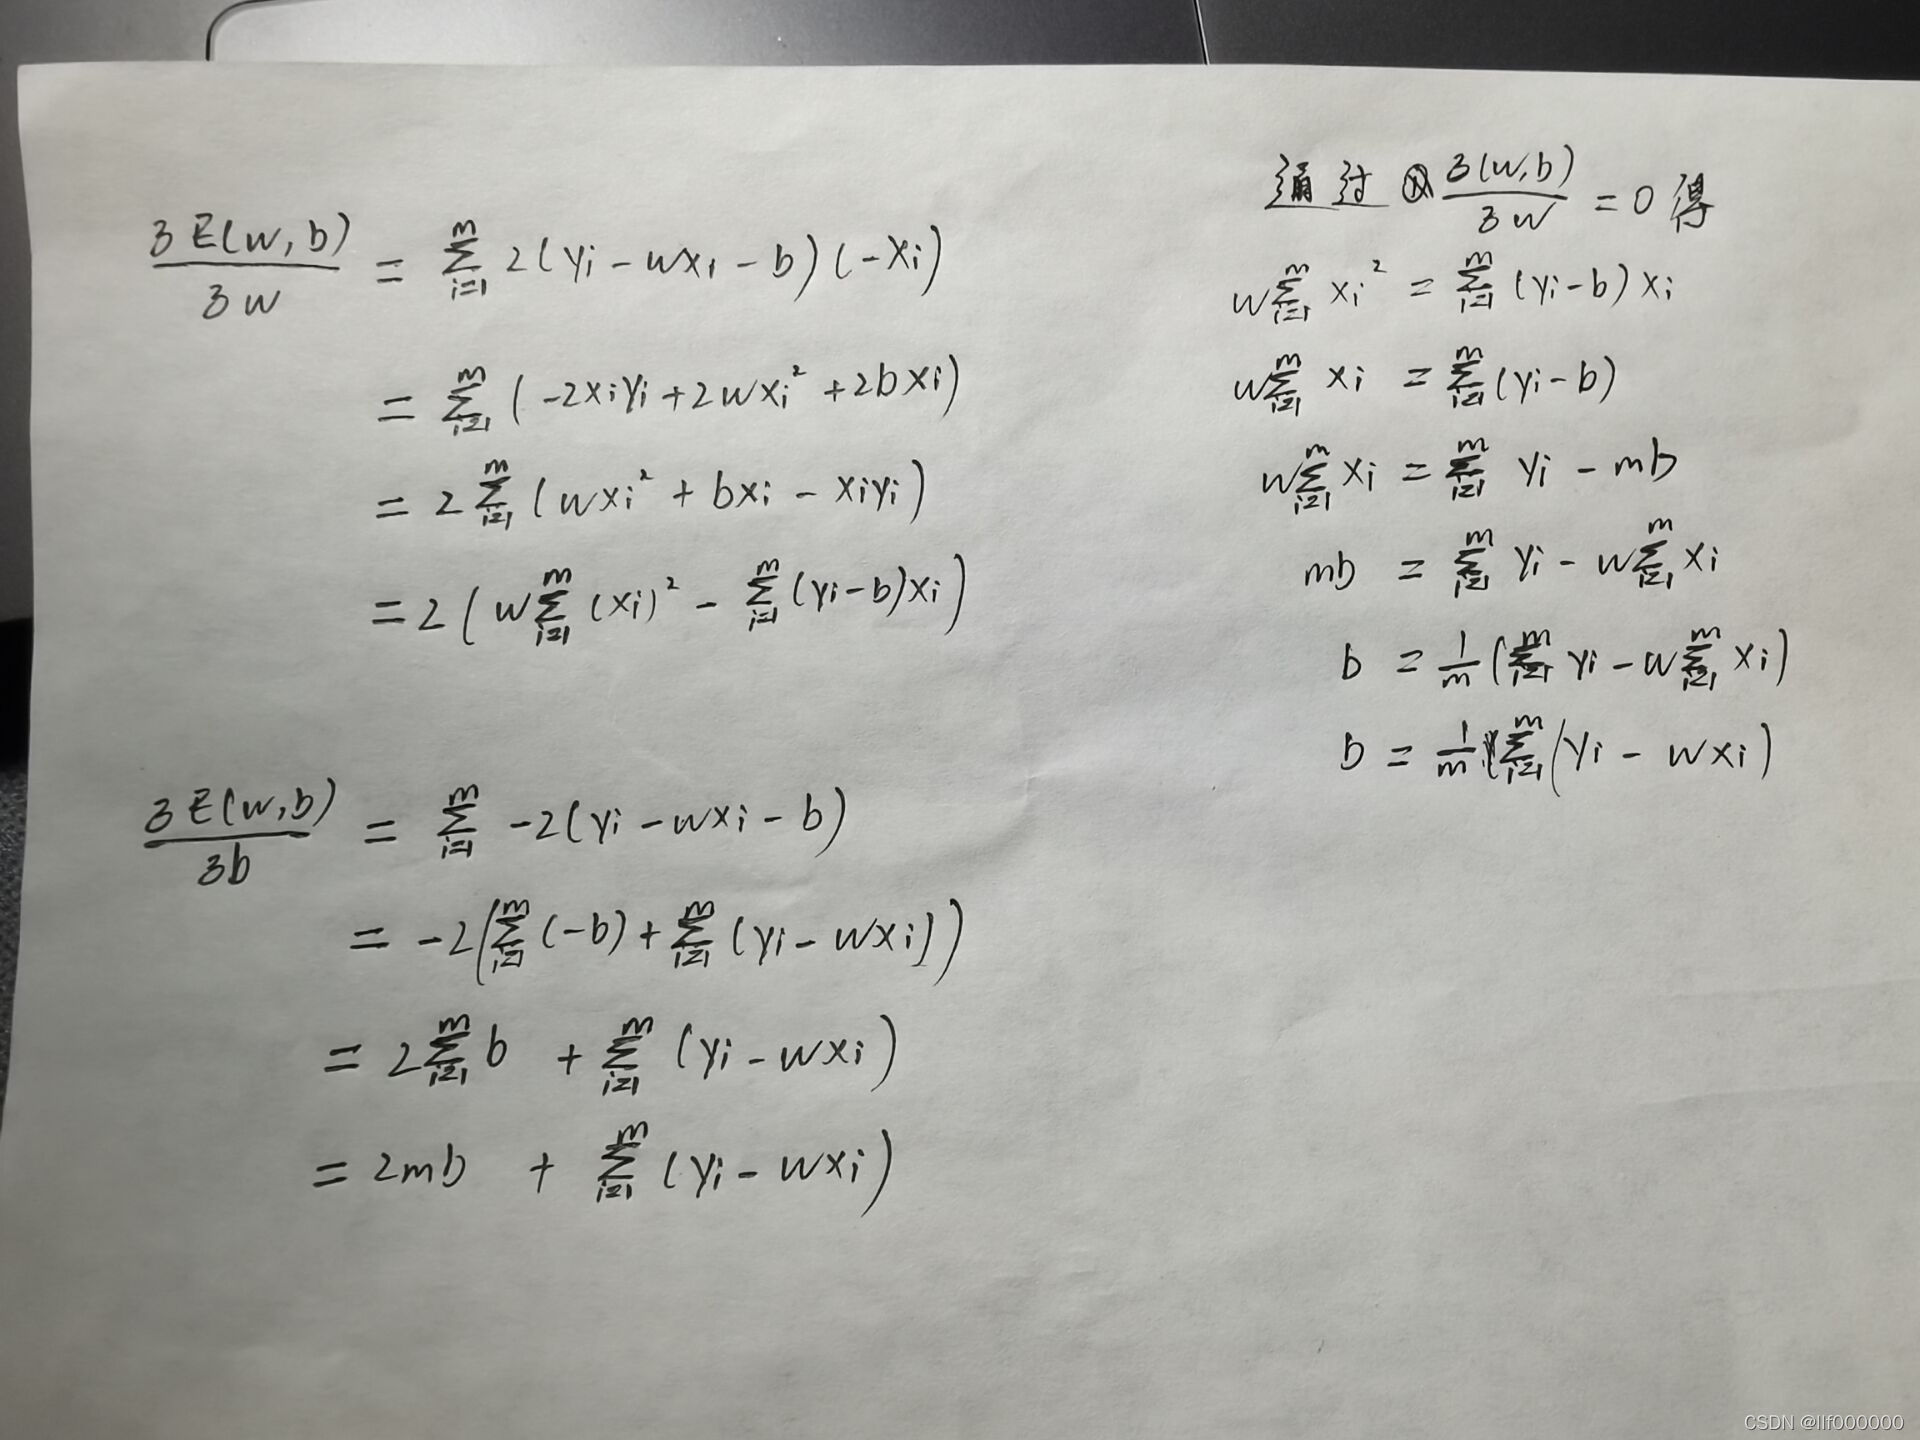 ∂E(w,b)/∂w = Σ_{i=1}^{m} 2(yi - wxi - b)(-xi)
= Σ_{i=1}^{m} (-2xiyi + 2wxi² + 2bxi)
= 2 Σ_{i=1}^{m} (wxi² + bxi - xiyi)
= 2(w Σ_{i=1}^{m} (xi)² - Σ_{i=1}^{m} (yi-b)xi)
∂E(w,b)/∂b = Σ_{i=1}^{m} -2(yi - wxi - b)
= -2(Σ_{i=1}^{m} (-b) + Σ_{i=1}^{m} (yi - wxi))
= 2 Σ_{i=1}^{m} b + Σ_{i=1}^{m} (yi - wxi)
= 2mb + Σ_{i=1}^{m} (yi - wxi)
通过 ∂(w,b)/∂w = 0 得
w Σ_{i=1}^{m} xi² = Σ_{i=1}^{m} (yi-b)xi
w Σ_{i=1}^{m} xi = Σ_{i=1}^{m} (yi-b)
w Σ_{i=1}^{m} xi = Σ_{i=1}^{m} yi - mb
mb = Σ_{i=1}^{m} yi - w Σ_{i=1}^{m} xi
b = 1/m (Σ_{i=1}^{m} yi - w Σ_{i=1}^{m} xi)
b = 1/m Σ_{i=1}^{m} (yi - wxi)
CSDN @llf000000